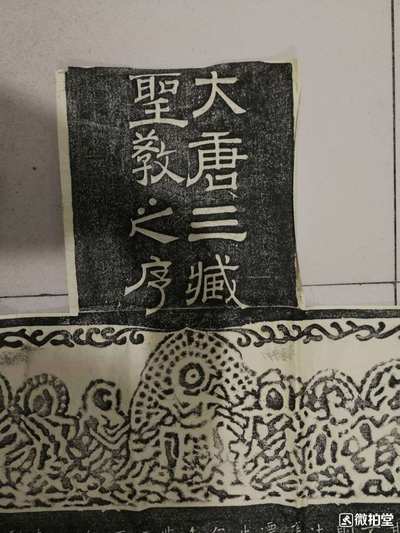 大唐三藏
聖教之序
微拍堂